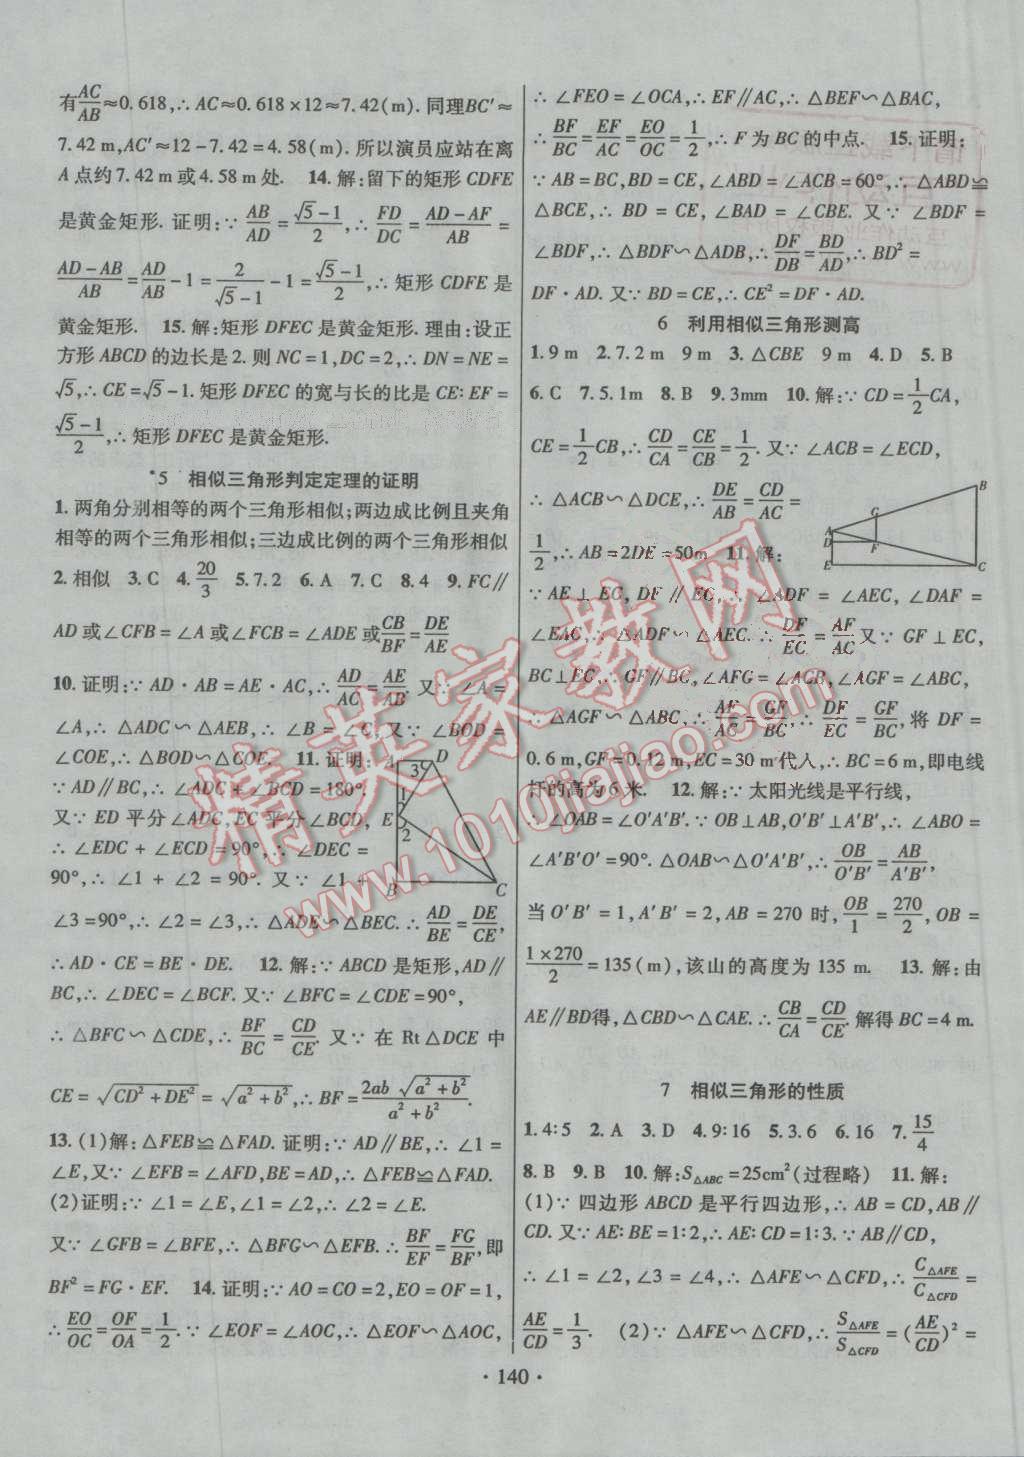 有AC/AB≈0.618,∴AC≈0.618×12≈7.42(m).同理BC′≈
7.42m,AC′≈12-7.42=4.58(m).所以演员应站在离
A点约7.42m或4.58m处. 14.解:留下的矩形CDFE
是黄金矩形. 证明:∵AB/AD=(√5-1)/2,∴FD/DC=(AD-AF)/AB=
(AD-AB)/AB=AD/AB-1=2/(√5-1)-1=(√5-1)/2,∴矩形CDFE是
黄金矩形. 15.解:矩形DFEC是黄金矩形.理由:设正
方形ABCD的边长是2.则NC=1,DC=2,∴DN=NE=
√5,∴CE=√5-1.矩形DFEC的宽与长的比是CE∶EF=
(√5-1)/2,∴矩形DFEC是黄金矩形.
*5 相似三角形判定定理的证明
1.两角分别相等的两个三角形相似;两边成比例且夹角
相等的两个三角形相似;三边成比例的两个三角形相似
2.相似 3.C 4.20/3 5.7.2 6.A 7.C 8.4 9.FC∥
AD或∠CFB=∠A或∠FCB=∠ADE或CB/BF=DE/AE
10.证明:∵AD·AB=AE·AC,∴AD/AC=AE/AB.又∵∠A=
∠A,∴△ADC∽△AEB,∴∠B=∠C,又∵∠BOD=
∠COE,∴△BOD∽△COE. 11.证明:
∵AD∥BC,∴∠ADC+∠BCD=180°.
又∵ED平分∠ADC,EC平分∠BCD,
∴∠EDC+∠ECD=90°,∴∠DEC=
90°,∴∠1+∠2=90°.又∵∠1+
∠3=90°,∴∠2=∠3,∴△ADE∽△BEC.∴AD/BE=DE/CE,
∴AD·CE=BE·DE. 12.解:∵ABCD是矩形,AD∥
BC,∴∠DEC=∠BCF.又∵∠BFC=∠CDE=90°,
∴△BFC∽△CDE,∴BF/BC=CD/CE.又∵在Rt△DCE中
CE=√(CD²+DE²)=√(a²+b²),∴BF=2ab√(a²+b²)/(a²+b²).
13.(1)解:△FEB≌△FAD.证明:∵AD∥BE,∴∠1=
∠E,又∵∠EFB=∠AFD,BE=AD,∴△FEB≌△FAD.
(2)证明:∵∠1=∠E,∠1=∠2,∴∠2=∠E.
又∵∠GFB=∠BFE,∴△BFG∽△EFB.∴BF/EF=FG/BF,即
BF²=FG·EF. 14.证明:∵AO=CO=2,EO=OF=1,
∴EO/OC=OF/OA=1/2.∵∠EOF=∠AOC,∴△EOF∽△AOC,
A
3
D
1
E
2
B
C
∴∠FEO=∠OCA,∴EF∥AC,∴△BEF∽△BAC,
∴BF/BC=EF/AC=EO/OC=1/2,∴F为BC的中点. 15.证明:
∵AB=BC,BD=CE,∠ABD=∠ACB=60°,∴△ABD≌
△BCE,∴BD=CE,∠BAD=∠CBE.又∵∠BDF=
∠BDF,∴△BDF∽△ADB,∴DF/DB=BD/AD,∴BD²=
DF·AD.又∵BD=CE,∴CE²=DF·AD.
6 利用相似三角形测高
1.9m 2.7.2m 9m 3.△CBE 9m 4.D 5.B
6.C 7.5.1m 8.B 9.3mm 10.解:∵CD=1/2CA,
CE=1/2CB,∴CD/CA=CE/CB=1/2.又∵∠ACB=∠ECD,
∴△ACB∽△DCE,∴DE/AB=CD/AC=
1/2,∴AB=2DE=50m 11.解:
∵AE⊥EC,DF∥EC,∴∠ADF=∠AEC,∠DAF=
∠EAC,∴△ADF∽△AEC.∴DF/EC=AF/AC又∵GF⊥EC,
BC⊥EC,∴GF∥BC,∠AFG=∠ACB,∠AGF=∠ABC,
∴△AGF∽△ABC,∴AF/AC=GF/BC,∴DF/EC=GF/BC,将DF=
0.6m,GF=0.12m,EC=30m代人,∴BC=6m,即电线
杆的高为6米. 12.解:∵太阳光线是平行线,
∴∠OAB=∠O′A′B′.∵OB⊥AB,O′B′⊥A′B′,∴∠ABO=
∠A′B′O′=90°.△OAB∽△O′A′B′,∴OB/O′B′=AB/A′B′,
当O′B′=1,A′B′=2,AB=270时,OB/1=270/2,OB=
1×270/2=135(m),该山的高度为135m. 13.解:由
AE∥BD得,△CBD∽△CAE.∴CB/CA=CD/CE.解得BC=4m.
B
G
A
D
F
E
C
7 相似三角形的性质
1.4∶5 2.A 3.D 4.9∶16 5.3.6 6.16 7.15/4
8.B 9.B 10.解:S△ABC=25cm²(过程略) 11.解:
(1)∵四边形ABCD是平行四边形,∴AB=CD,AB∥
CD.又∵AE∶BE=1∶2,∴AE∶CD=1∶3.∵AB∥CD,
∴∠1=∠2,∠3=∠4,∴△AFE∽△CFD,∴C△AFE/C△CFD=
AE/CD=1/3. (2)∵△AFE∽△CFD,∴S△AFE/S△CFD=(AE/CD)²=
·140·
精英家教网
www.1010jiajiao.com